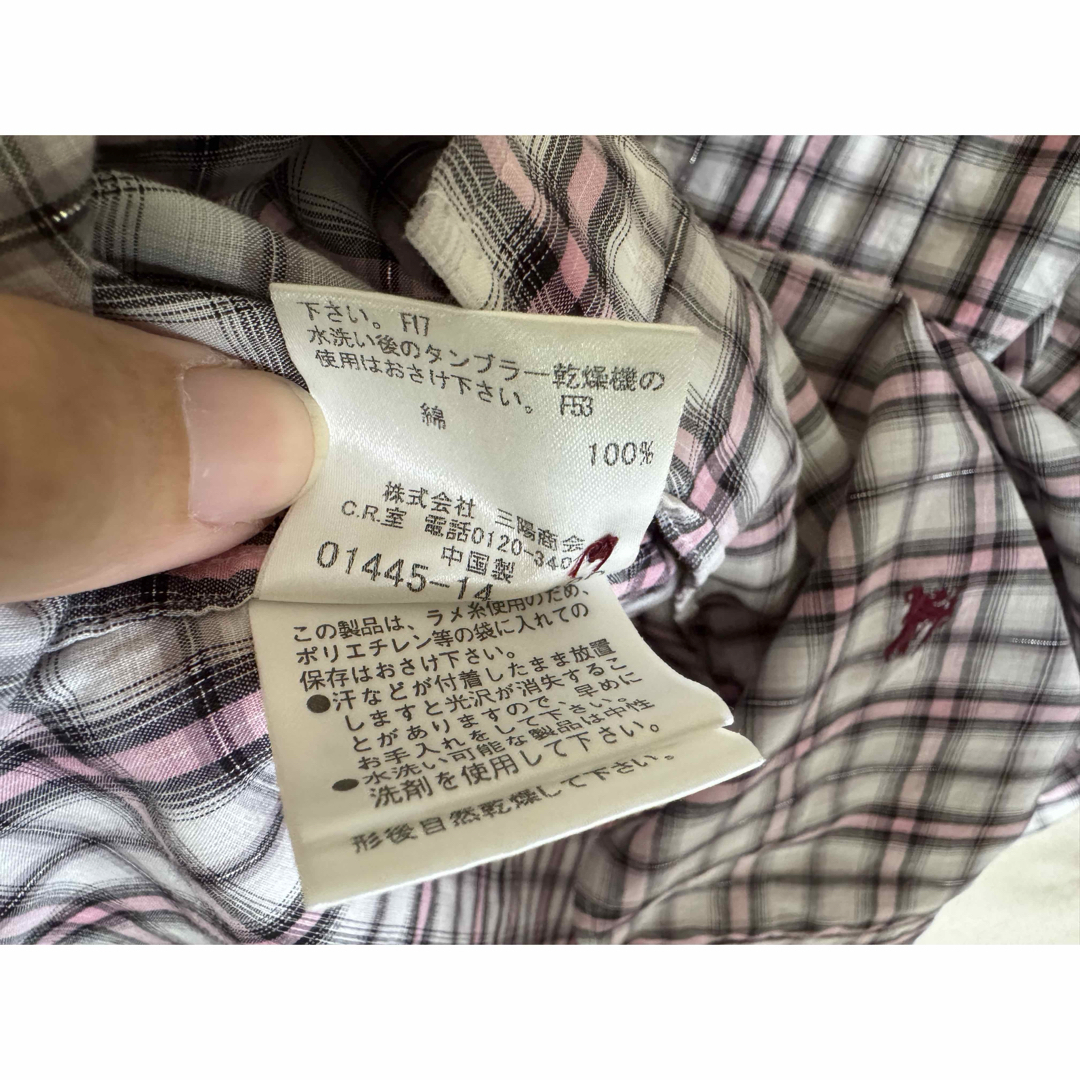 下さい。 F17
水洗い後のタンブラー乾燥機の
使用はおさけ下さい。 F53
綿
100%
株式会社 三陽商会
C.R.室 電話0120-340
中国製
01445-14
この製品は、ラメ糸使用のため、
ポリエチレン等の袋に入れての
保存はおさけ下さい。
●汗などが付着したまま放置
しますと光沢が消失するこ
とがありますので、早めに
お手入れをして下さい。
●水洗い可能な製品は中性
洗剤を使用して下さい。
形後自然乾燥して下さい。